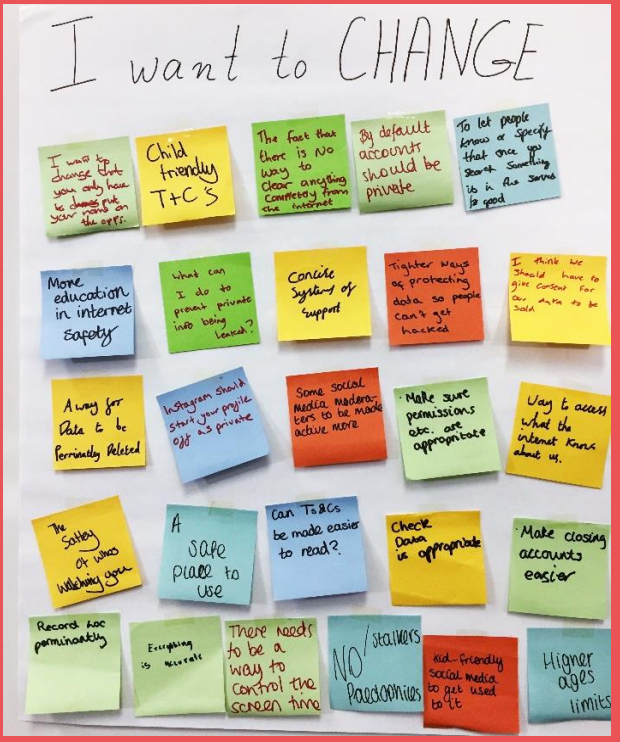 I want to CHANGE
I want to
change that
you only have
to put
your name on
the apps.
Child
friendly
T+C'S
The fact that
there is NO
way to
clear anything
completely from
the internet
By default
accounts
should be
private
To let people
know or specify
that once you
search something
is in the servers
good
More
education
in internet
safety
What can
I do to
prevent private
info being
leaked?
Concise
Systems of
support
Tighter ways
of protecting
data so people
can't get
hacked
I think we
should have to
give consent for
our data to be
sold
A way for
Data to be
Perminatly Deleted
Instagram should
start your profile
off as private
Some social
media modera-
ters to be made
active more
Make sure
permissions
etc. are
appropriate
Way to access
what the
internet knows
about us.
The
Saftey
of whos
watching you
A
safe
place to
use
Can Ts&Cs
be made easier
to read?
Check
Data
is appropriate
Make closing
accounts
easier
Record
perminantly
Everything
is accurate
There needs
to be a
way to
control the
screen time
NO / stalkers
Paedophiles
Kid-friendly
social media
to get used
to it
Higher
ages
limits